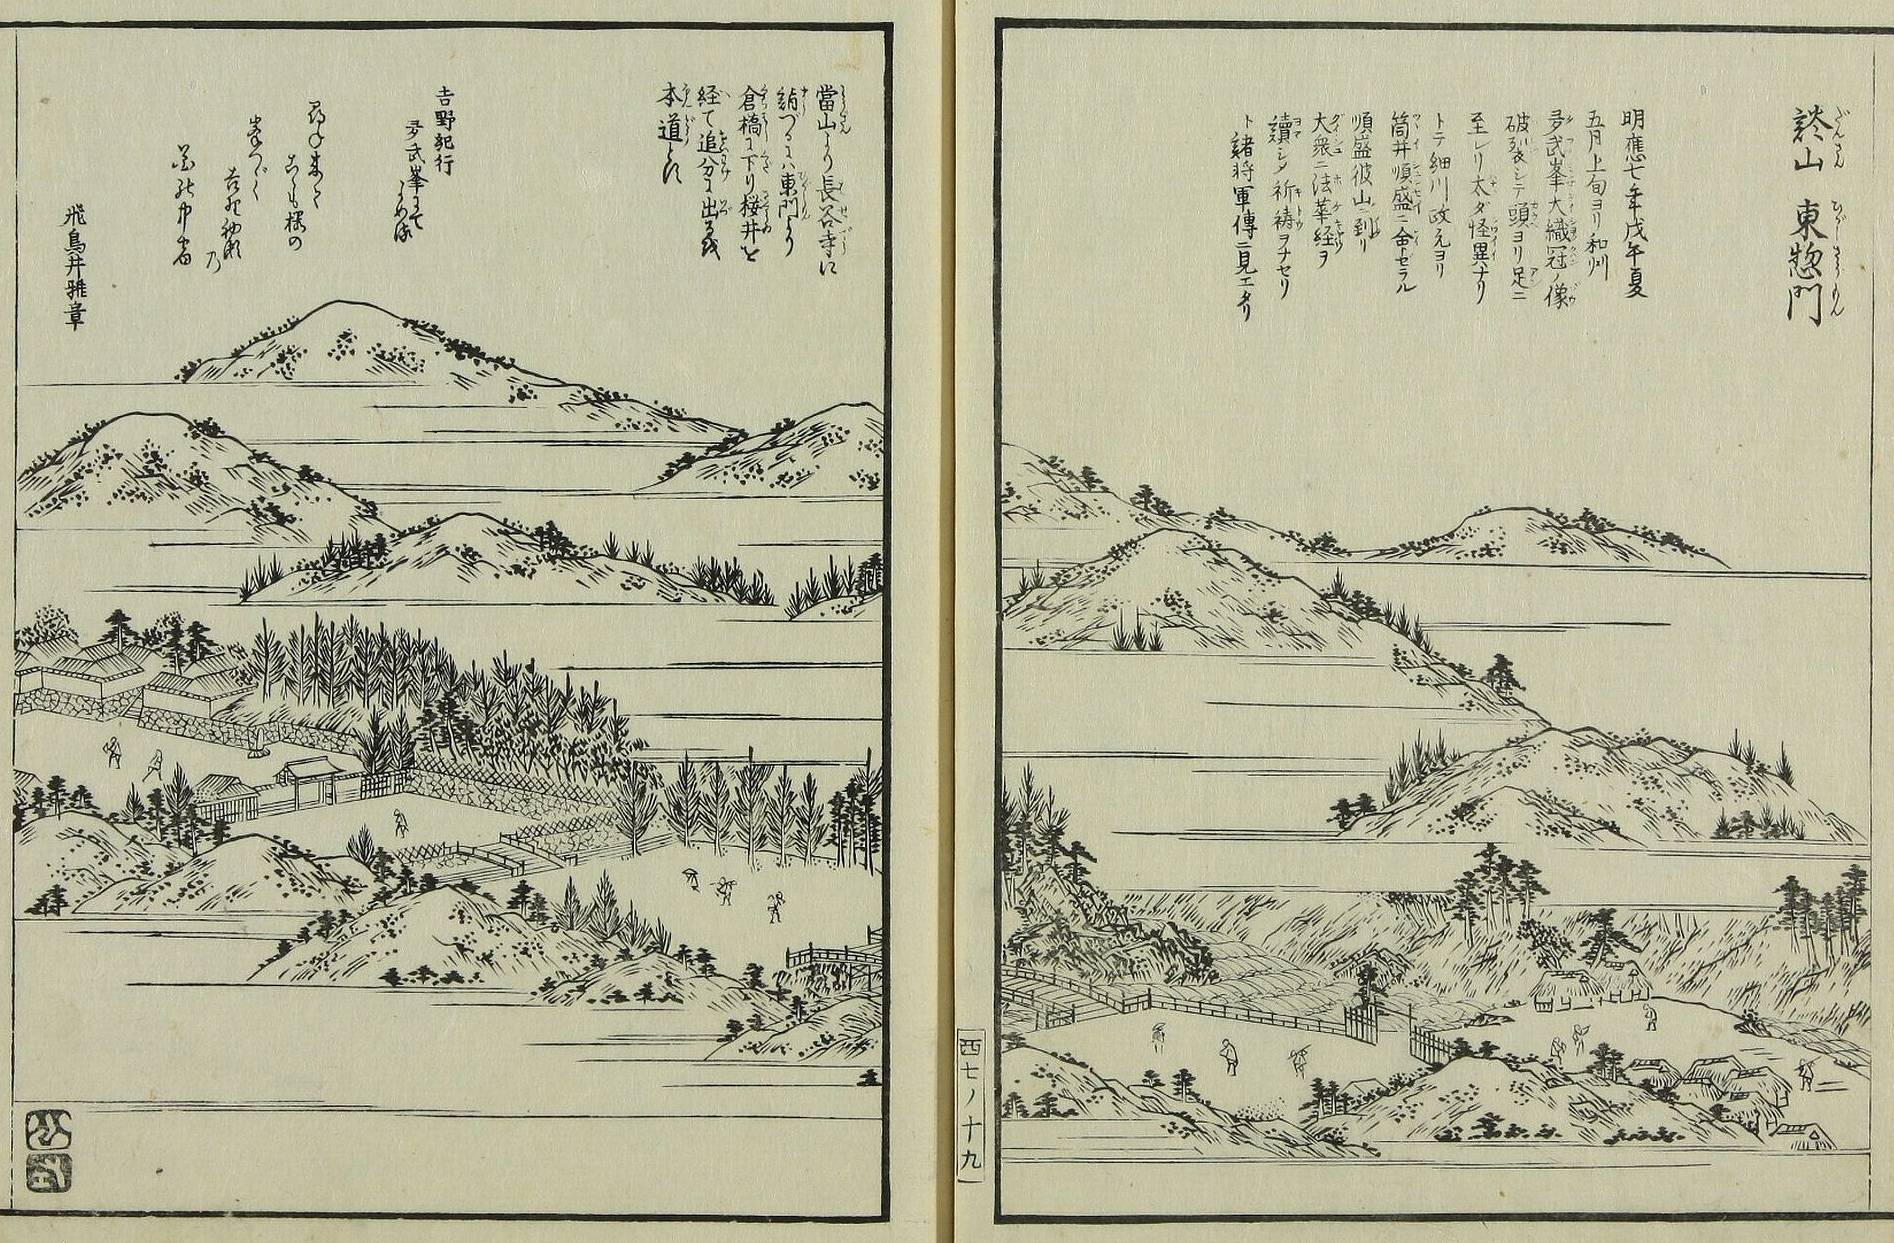 談山 東惣門
明應七年戊午夏
五月上旬ヨリ和州
多武峯大織冠ノ像
破裂シテ頭ヨリ足ニ
至レリ太ダ怪異ナリ
トテ細川政元ヨリ
筒井順盛ニ命セラル
順盛彼山ニ到リ
大衆ニ法華経ヲ
讀シメ祈祷ヲナセリ
ト諸将軍傳ニ見エタリ
當山より長谷寺に
詣づるには東門より
倉橋に下り桜井を
経て追分に出るを
本道とす
吉野紀行
多武峯にて
飛鳥井雅章
西七ノ十九